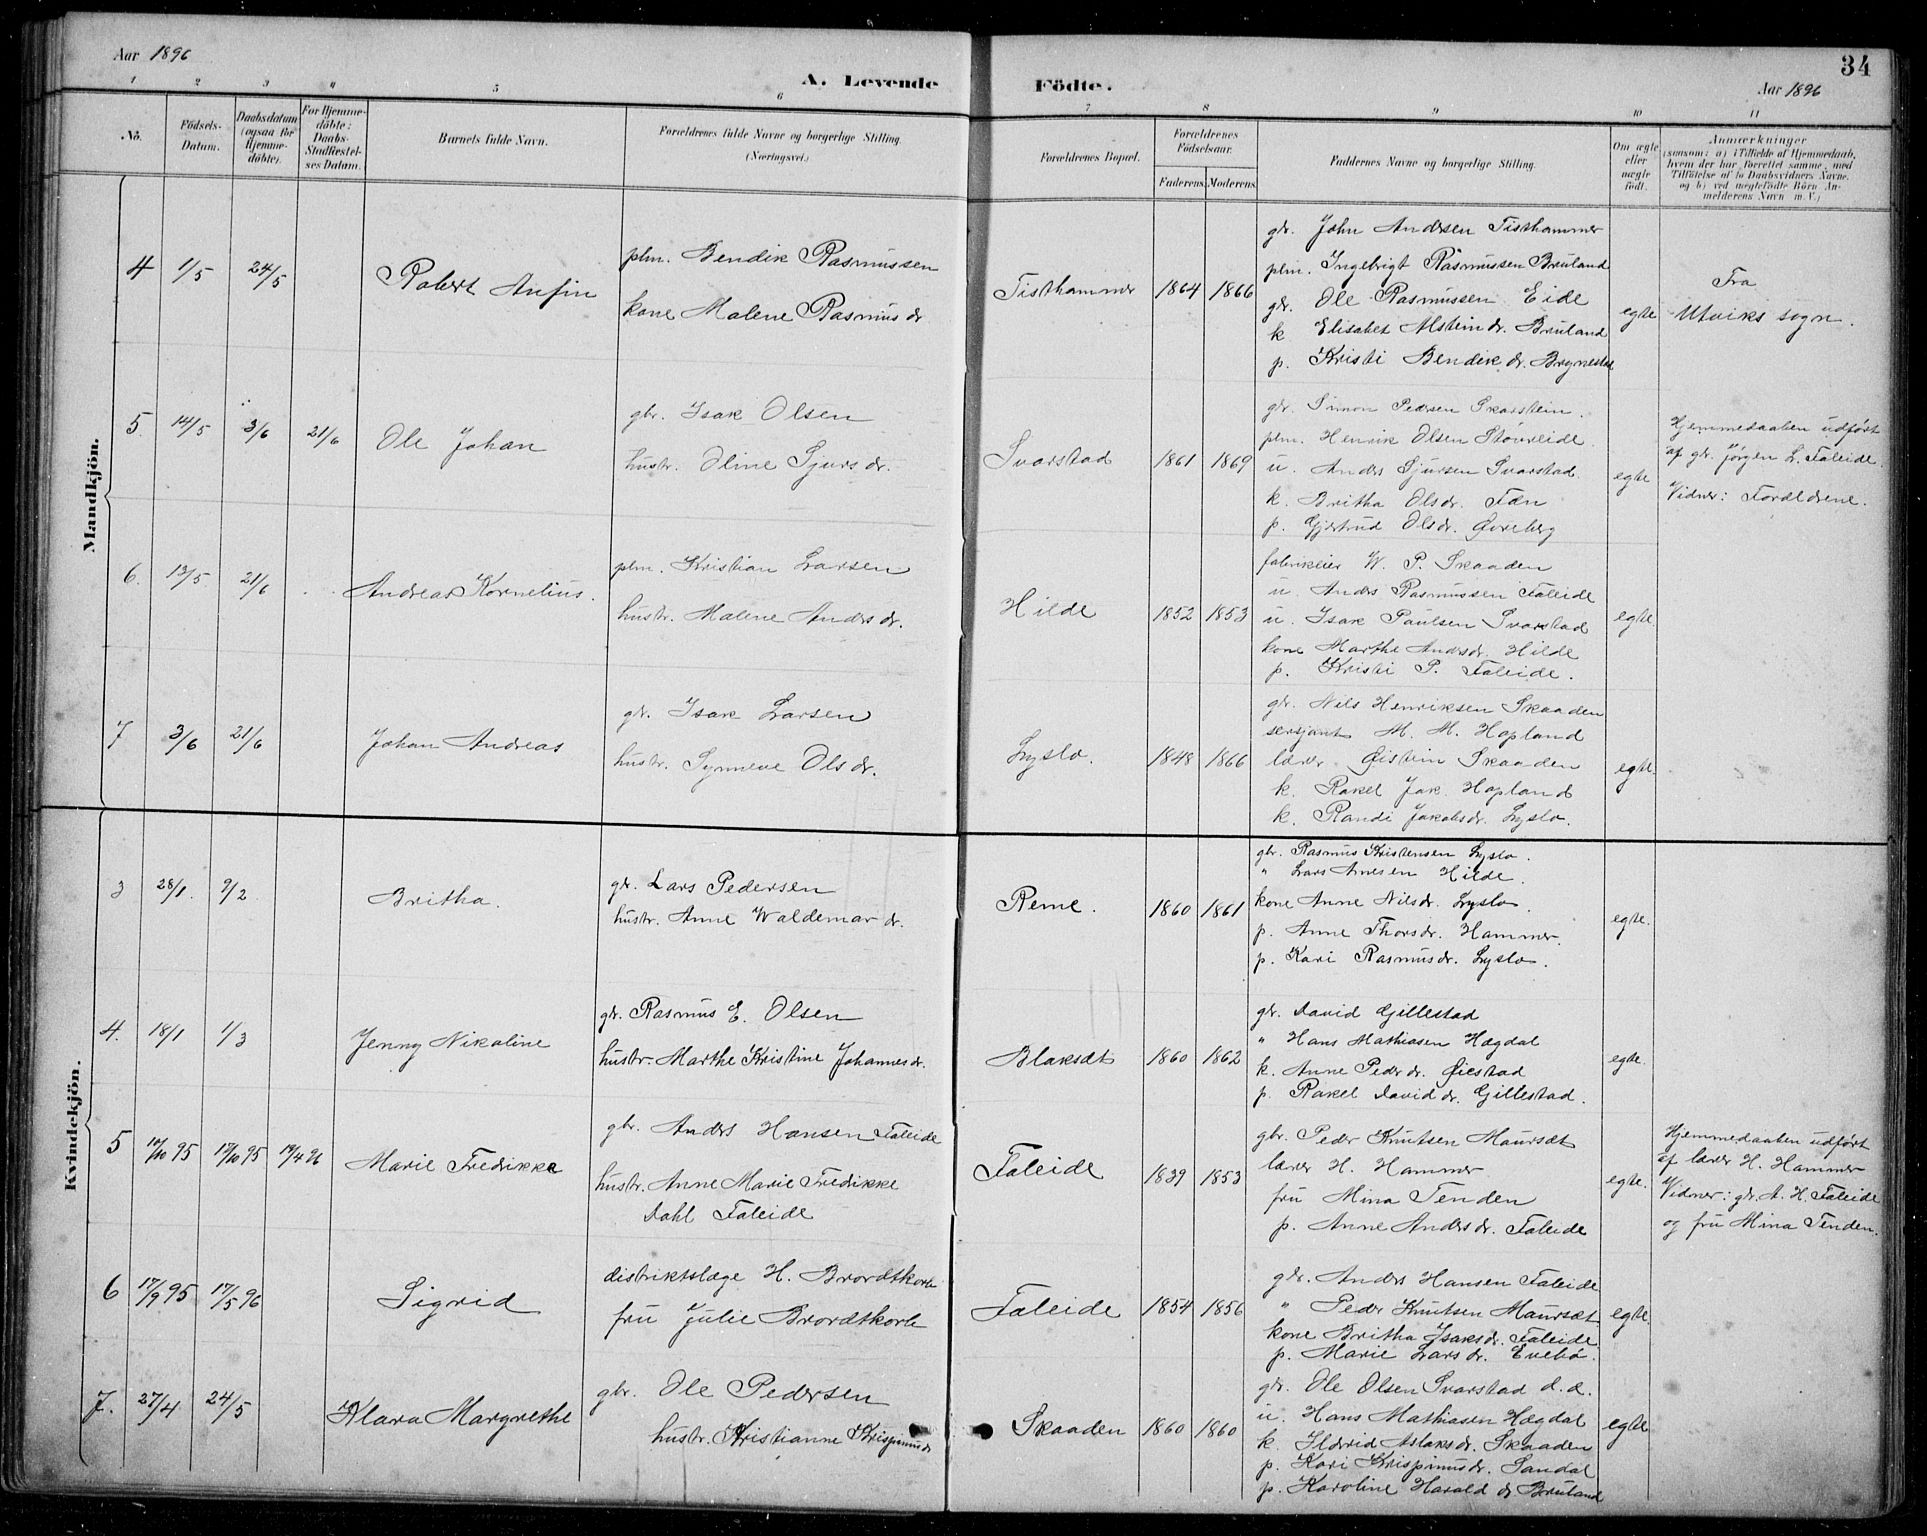 Aar 1896
A. Levende
Födte.
34
Aar 1896
1 2 3 4 5 6 7 8 9 10 11
No.
Födsels-Datum.
Daabsdatum (ogsaa for Hjemmedöbte).
For Hjemmedöbte: Daabs-Stadfæstelses Datum.
Barnets fulde Navn.
Forældrenes fulde Navne og borgerlige Stilling (Næringsvei.)
Forældrenes Bopæl.
Forældrenes Födselsaar.
Faderens. Moderens.
Faddernes Navne og borgerlige Stilling.
Om ægte eller uægte födt.
Anmærkninger
(saasom: a) i Tilfælde af Hjemmedaab,
hvem der har forrettet samme, med
Tilföielse af to Daabsvidners Navne.
og b) ved uægtefödte Börn An-
melderens Navn m. V.)
Mandkjön.
4 1/5 24/5 Robert Anfin
plm. Bendik Rasmussen
kone Malene Rasmusdr
Tisthammer 1864 1866
gbr. John Andersen Tisthammer
plm. Ingebrigt Rasmussen Bruland
gbr. Ole Rasmussen Eide
k Elisabet Alsteindr. Bruland
p. Kristi Bendikdr. Brynestad
egte
Fra
Utviks sogn.
5. 14/5 3/6 21/6 Ole Johan
gbr. Isak Olsen
hustr. Oline Sjursdr.
Svarstad 1861 1869
gbr. Simon Pedersen Skarstein.
plm. Henrik Olsen Støvreide.
u. Anders Sjursen Svarstad.
k. Britha Olsdr. Tæn
p. Gjertrud Olsdr. Øvreberg
egte
Hjemmedaaben udført
af gbr. Jørgen L. Faleide.
Vidner: Forældrene.
6. 13/5 21/6 Andreas Kornelius.
plm. Kristian Larsen
hustr. Malene Andersdr.
Hilde 1852 1853
fabrikeier W. P. Skaaden
u. Anders Rasmussen Faleide
u. Isak Paulsen Svarstad
kone Marthe Andersdr. Hilde
p. Kristi P. Faleide.
egte.
7 3/6 21/6 Johan Andreas
gbr. Isak Larsen
hustr. Synneve Olsdr.
Lyslo. 1848 1866
gbr. Nils Henriksen Skaaden
sersjant M. M. Hopland
lærer Øistein Skaaden
k. Rakel Jak. Hopland
k. Randi Jakobsdr. Lyslo.
egte.
Kvindekjön.
3 28/1. 9/2 Britha.
gbr. Lars Pedersen
hustr. Anne Waldemardr.
Reme. 1860 1861
gbr. Rasmus Kristensen Lyslo.
" Lars Hilde.
kone Anne Nilsdr. Lyslo.
p. Anne Thorsdr. Hammer.
p. Kari Rasmusdr. Lyslo.
egte.
4. 18/1 1/3 Jenny Nikoline
gbr. Rasmus E. Olsen
hustr. Marthe Kristine Johannesdr.
Blaksæt 1860 1862
gbr. David Gillestad
" Hans Mathiasen Hægdal
k. Anne Pedrdr. Øiestad
p. Rakel Daviddr. Gillestad.
egte.
5 10/10 95 17/10 95 19/4 96 Marie Fredrikke
gbr. Anders Hansen Faleide
hustr. Anne Marie Fredrikke
Dahl Faleide
Faleide 1839 1853
gbr. Peder Knutsen Maursæt
lærer H. Hammer
fru Mina Tenden
p. Anne Andersdr. Faleide
egte.
Hjemmedaaben udført
af lærer H. Hammer
Vidner: gbr. A. H. Faleide
og fru Mina Tenden.
6 17/9 95 17/5 96 Sigrid
distriktslæge H. Brordtkorb
fru Julie Brordtkorb
Faleide 1854 1856
gbr. Anders Hansen Faleide
" Peder Knutsen Maursæt
kone Britha Isaksdr. Faleide
p. Marie Larsdr. Evebø.
egte.
7. 27/4 24/5 Klara Margrethe
gbr. Ole Pedersen
hustr. Kristianne Krispinusdr
Skaaden 1860 1860
gbr. Ole Olsen Svarstad d.æ.
u. Hans Mathiasen Hægdal
k. Ildrid Aslaksdr. Skaaden
p. Kari Krispinusdr. Sandal
p. Karoline Haralddr. Bruland
egte